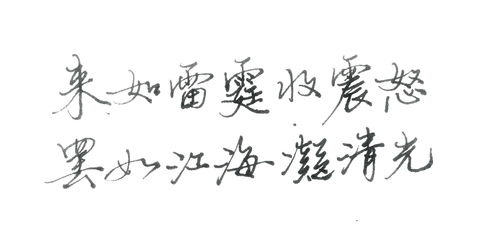 来如雷霆收震怒
罢如江海凝清光